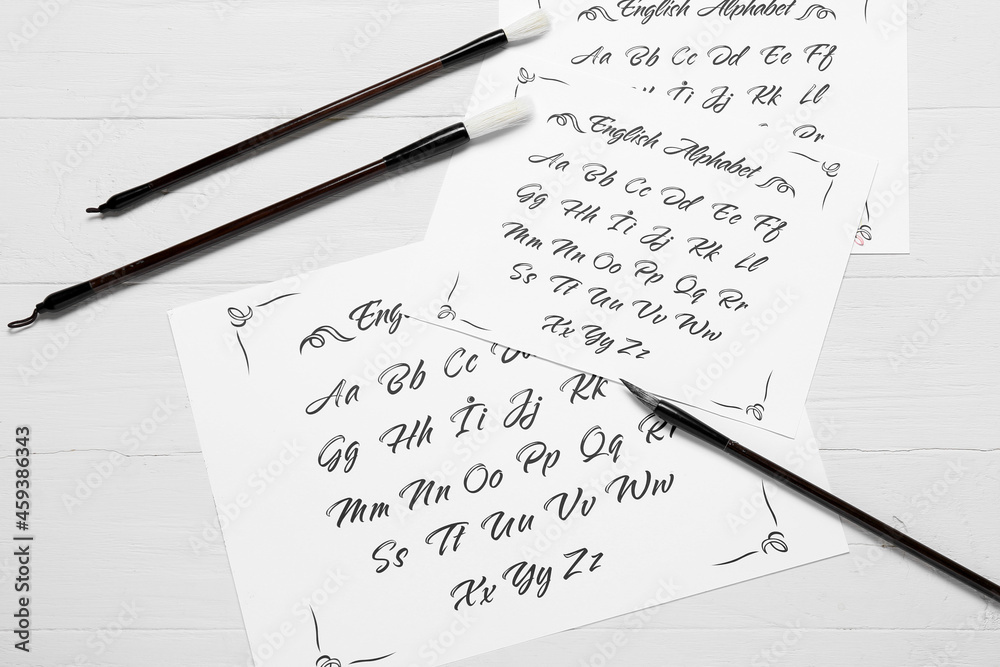 English Alphabet
Aa Bb Cc Dd Ee Ff
Ii Jj Kk Ll
English Alphabet
Aa Bb Cc Dd Ee Ff
Gg Hh İi Jj Kk Ll
Mm Nn Oo Pp Qq Rr
Ss Tt Uu Vv Ww
Xx Yy Zz
Eng
Aa Bb Cc
Gg Hh İi Jj Kk
Mm Nn Oo Pp Qq Rr
Ss Tt Uu Vv Ww
Xx Yy Zz
Adobe Stock | #459386343